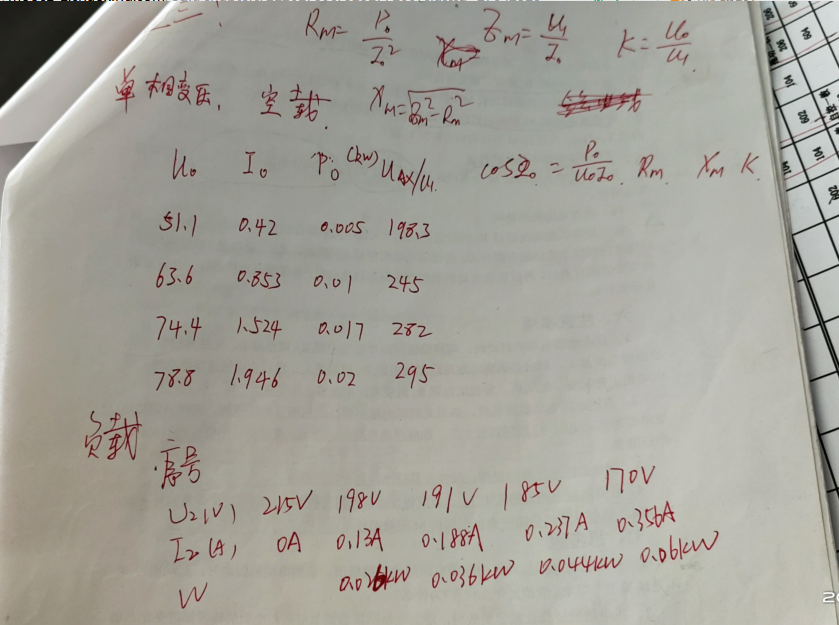 Rm= P₀/I₀² Zm= U₁/I₀ K= U₀/U₁
单相变压, 空载 Xm=√(Zm²-Rm²)
U₀ I₀ P₀(kw) UAX/U₁. cosΦ₀ = P₀/U₀I₀. Rm. Xm K.
51.1 0.42 0.005 198.3
63.6 0.853 0.01 245
74.4 1.524 0.017 282
78.8 1.946 0.02 295
负载
序号
U₂(V) 215V 198V 191V 185V 170V
I₂(A) 0A 0.13A 0.188A 0.237A 0.356A
W 0.026kW 0.036kW 0.044kW 0.06kW